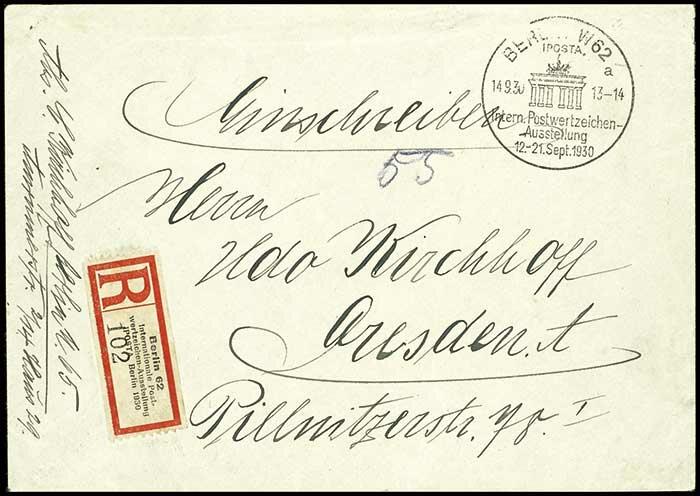 BERLIN W62
IPOSTA.
a
14.9.30 13-14
Intern. Postwertzeichen-
Ausstellung
12.-21. Sept. 1930
Einschreiben
55
Herrn
Udo Kirchhoff
Dresden. A
Pillnitzerstr. 70. I
R
Berlin 62
Internationale Post-
wertzeichen-Ausstellung
IPOSTA Berlin 1930
102
Abs. Berlin N. 65.